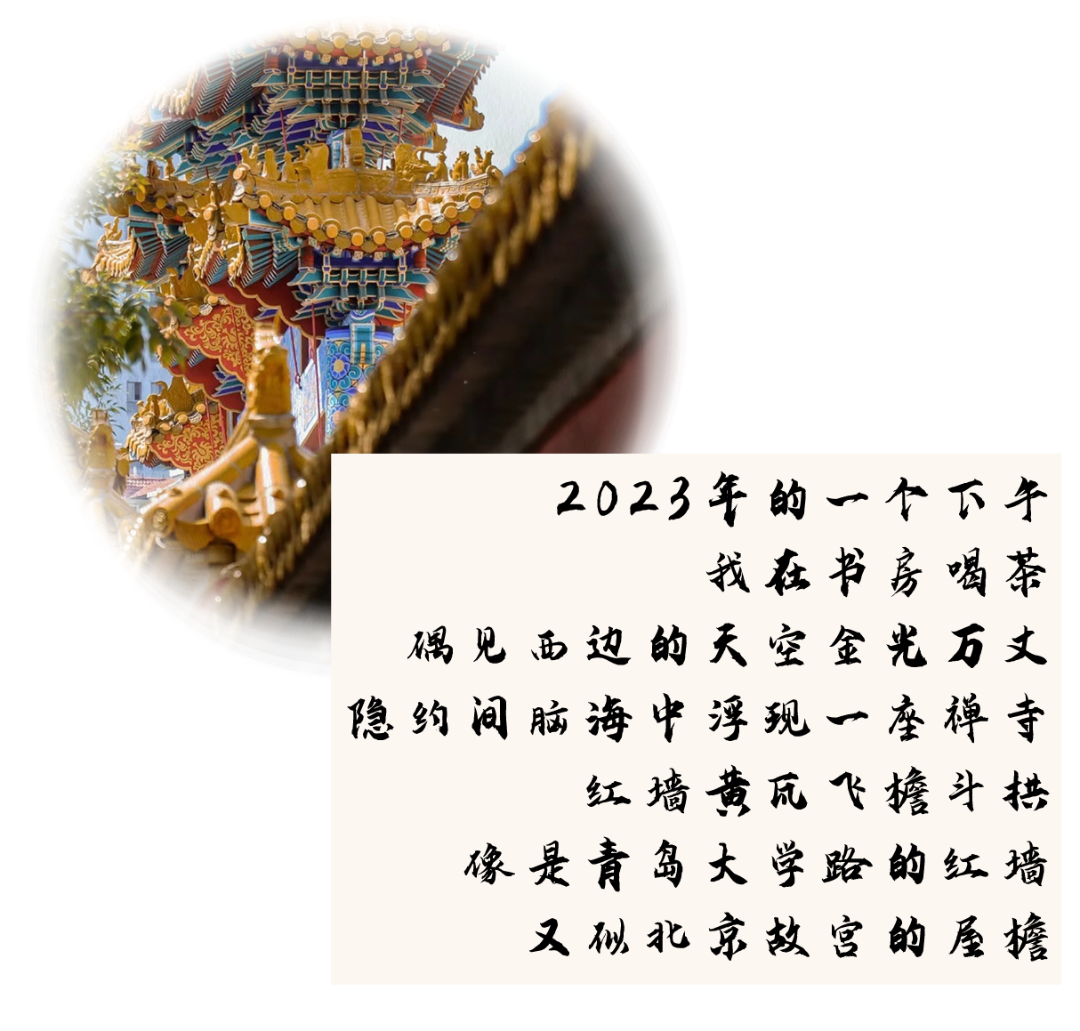 2023年的一个下午
我在书房喝茶
偶见西边的天空金光万丈
隐约间脑海中浮现一座禅寺
红墙黄瓦飞檐斗拱
像是青岛大学路的红墙
又似北京故宫的屋檐